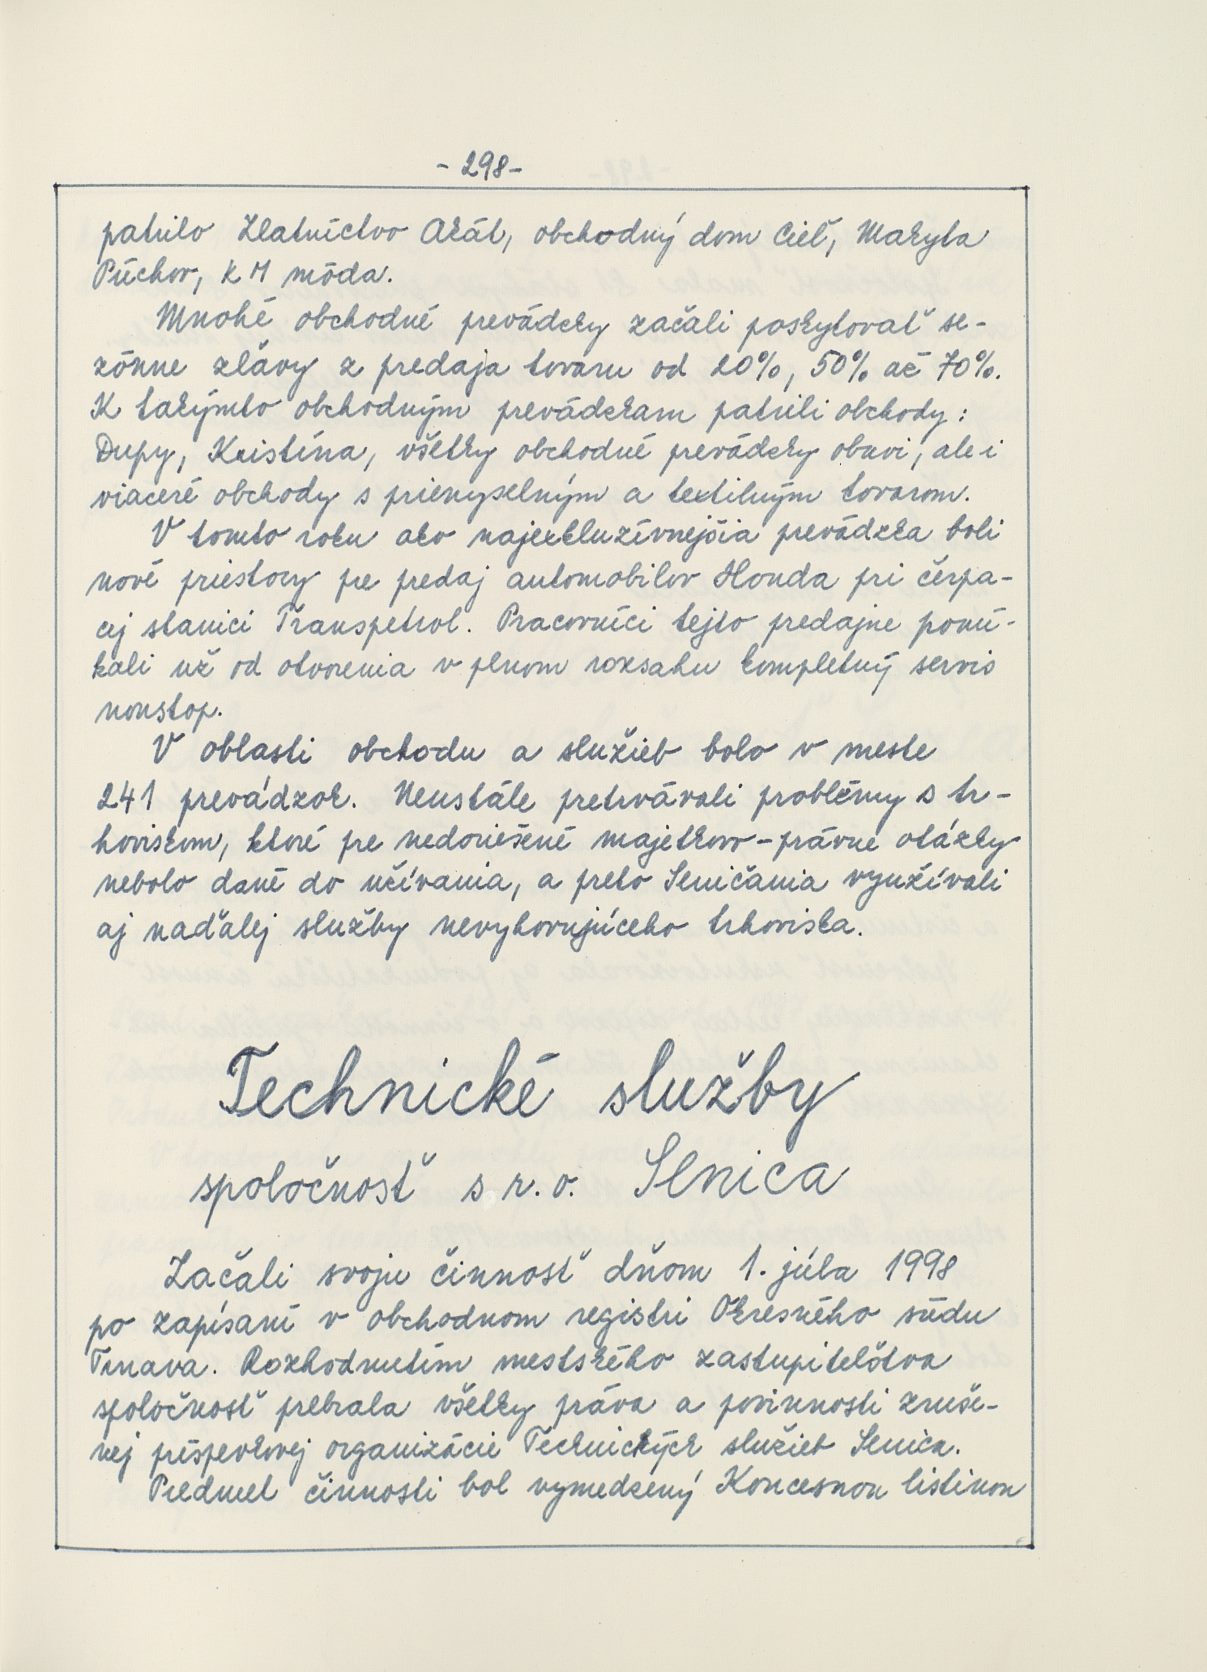 - 298 -
patrilo Zlatníctvo Akát, obchodný dom Cieľ, Makyta
Púchov, K M móda.
Mnohé obchodné prevádzky začali poskytovať se-
zónne zľavy z predaja tovaru od 20%, 50% až 70%.
K takýmto obchodným prevádzkam patrili obchody:
Dupy, Kristína, všetky obchodné prevádzky obuvi, ale i
viaceré obchody s priemyselným a textilným tovarom.
V tomto roku ako najexkluzívnejšia prevádzka boli
nové priestory pre predaj automobilov Honda pri čerpa-
cej stanici Transpetrol. Pracovníci tejto predajne ponú-
kali už od otvorenia v plnom rozsahu kompletný servis
nonstop.
V oblasti obchodu a služieb bolo v meste
241 prevádzok. Neustále pretrvávali problémy s tr-
hoviskom, ktoré pre nedoriešené majetkovo-právne otázky
nebolo dané do užívania, a preto Seničania využívali
aj naďalej služby nevyhovujúceho trhoviska.
Technické služby
spoločnosť s r. o. Senica
Začali svoju činnosť dňom 1. júla 1998
po zapísaní v obchodnom registri Okresného súdu
Trnava. Rozhodnutím mestského zastupiteľstva
spoločnosť prebrala všetky práva a povinnosti zruše-
nej príspevkovej organizácie Technických služieb Senica.
Predmet činnosti bol vymedzený Koncesnou listinou